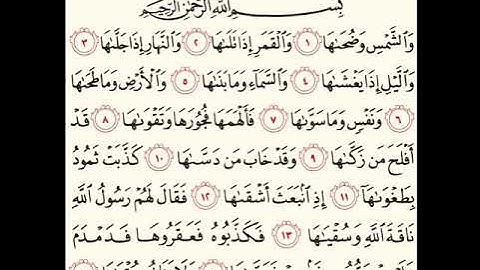 بِسْمِ اللَّهِ الرَّحْمَٰنِ الرَّحِيمِ
وَالشَّمْسِ وَضُحَىٰهَا ١ وَالْقَمَرِ إِذَا تَلَىٰهَا ٢ وَالنَّهَارِ إِذَا جَلَّىٰهَا ٣
وَاللَّيْلِ إِذَا يَغْشَىٰهَا ٤ وَالسَّمَاءِ وَمَا بَنَىٰهَا ٥ وَالْأَرْضِ وَمَا طَحَىٰهَا
٦ وَنَفْسٍ وَمَا سَوَّىٰهَا ٧ فَأَلْهَمَهَا فُجُورَهَا وَتَقْوَىٰهَا ٨ قَدْ
أَفْلَحَ مَن زَكَّىٰهَا ٩ وَقَدْ خَابَ مَن دَسَّىٰهَا ١٠ كَذَّبَتْ ثَمُودُ
بِطَغْوَىٰهَا ١١ إِذِ انۢبَعَثَ أَشْقَىٰهَا ١٢ فَقَالَ لَهُمْ رَسُولُ اللَّهِ
نَاقَةَ اللَّهِ وَسُقْيَىٰهَا ١٣ فَكَذَّبُوهُ فَعَقَرُوهَا فَدَمْدَمَ